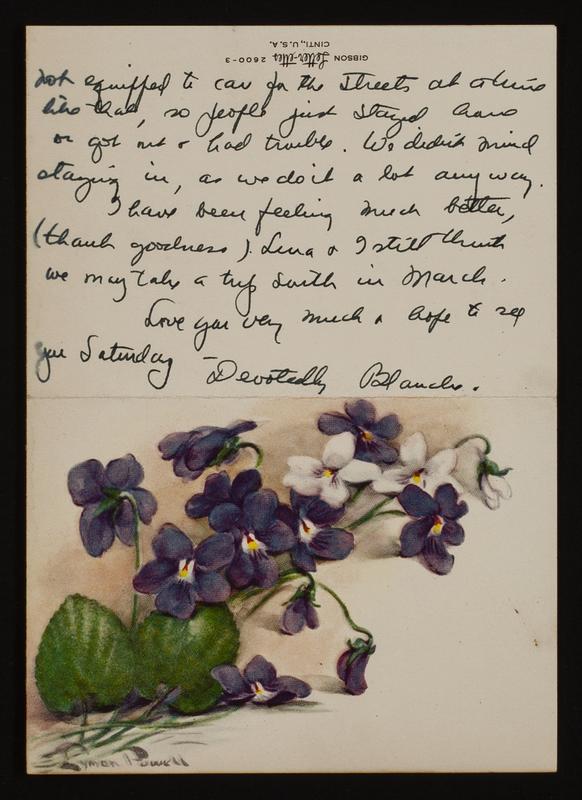 GIBSON Letter-ettes 2600-3
CINTI., U.S.A.
not equipped to care for the streets at a time
like that, so people just stayed home
or got out & had trouble. We didn't mind
staying in, as we do it a lot any way.
I have been feeling much better,
(thank goodness). Lena & I still think
we may take a trip South in March.
Love you very much & hope to see
you Saturday –
Devotedly Blanche.
Lyman Powell